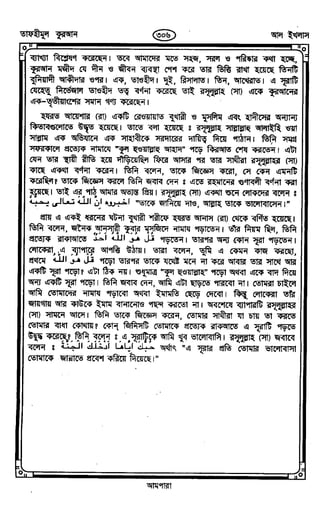 তাফহীমুল কুরআন
৩০৬
আল ইখলাস
ব্যাখ্যা বিশ্লেষণ করেছেন। তবে আমাদের মতে সহজ, সরল ও পরিষ্কার কথা হচ্ছে,
কুরআন মজীদ যে দীন ও জীবন ব্যবস্থা পেশ করে তার ভিত্তি রাখা হয়েছে তিনটি
বুনিয়াদী আকীদার ওপর। এক, তাওহীদ। দুই, রিসালাত। তিন, আখেরাত। এ সূরাটি
যেহেতু নির্ভেজাল তাওহীদ তত্ত্ব বর্ণনা করেছে তাই রসূলুল্লাহ (সা) একে কুরআনের
এক-তৃতীয়াংশের সমান গণ্য করেছেন।
হযরত আয়েশার (রা) একটি রেওয়ায়াত বুখারী ও মুসলিম এবং হাদীসের অন্যান্য
কিতাবগুলোতে উদ্ধৃত হয়েছে। তাতে বলা হয়েছে : রসূলুল্লাহ সাল্লাল্লাহু আলাইহি ওয়া
সাল্লাম এক অভিযানে এক সাহাবীকে সরদারের দায়িত্ব দিয়ে পাঠান। তিনি সমগ্র
সফরকালে প্রত্যেক নামাযে "কুল হুওয়াল্লাহু আহাদ" পড়ে কিরআত শেষ করতেন। এটা
যেন তার স্থায়ী রীতি হয়ে দাঁড়িয়েছিল ফিরে আসার পর তার সাথীরা রসূলুল্লাহর (সা)
কাছে একথা বর্ণনা করেন। তিনি বলেন, তাকে জিজ্ঞেস করো, সে কেন এমনটি
করেছিল? তাকে জিজ্ঞেস করলে তিনি জবাব দেন : এতে রহমানের গুণাবলী বর্ণনা করা
হয়েছে। তাই এর পাঠ আমার অত্যন্ত প্রিয়। রসূলুল্লাহ (সা) একথা শুনে লোকদের বলেন :
اخبروه ان الله تعالى يحبه "তাকে জানিয়ে দাও, আল্লাহ তাকে ভালোবাসেন।"
প্রায় এ একই ধরনের ঘটনা বুখারী শরীফে হযরত আনাস (রা) থেকে বর্ণিত হয়েছে।
তিনি বলেন, জনৈক আনসারী কুবার মসজিদে নামায পড়াতেন। তাঁর নিয়ম ছিল, তিনি
প্রত্যেক রাকাআতে قل هو الله احد পড়তেন। তারপর অন্য কোন সূরা পড়তেন।
লোকেরা এ ব্যাপারে আপত্তি উঠায়। তারা বলেন, তুমি এ কেমন কাজ করছো,
প্রথমে قل هو الله পড়ো তারপর তাকে যথেষ্ট মনে না করে আবার তার সাথে আর
একটি সূরা পড়ো? এটা ঠিক নয়। শুধুমাত্র "কুল হুওয়াল্লাহ" পড়ো অথবা একে বাদ দিয়ে
অন্য একটি সূরা পড়ো। তিনি জবাব দেন, আমি এটা ছাড়তে পারবো না। তোমরা চাইলে
আমি তোমাদের নামায পড়াবো অথবা ইমামতি ছেড়ে দেবো। কিন্তু লোকেরা তাঁর
জায়গায় আর কাউকে ইমাম বানানোও পছন্দ করতো না। অবশেষে ব্যাপারটি রসূলুল্লাহর
(সা) সামনে আসে। তিনি তাকে জিজ্ঞেস করেন, তোমার সাথীরা যা চায় তা করতে
তোমার বাধা কোথায়? কোন্ জিনিসটি তোমাকে প্রত্যেক রাকাআতে এ সূরাটি পড়তে
উদ্বুদ্ধ করেছে? তিনি বলেন : এ সূরাটিকে আমি খুব ভালোবাসি। রসূলুল্লাহ (সা) জবাবে
বলেন : حبك اياها ادخلك الجنة অর্থাৎ "এ সূরার প্রতি তোমার ভালোবাসা
তোমাকে জান্নাতে প্রবেশ করিয়ে দিয়েছে।"
আমপারা